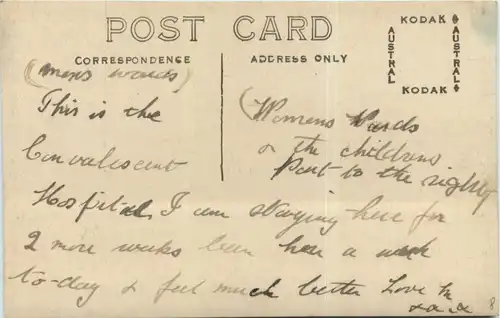 POST CARD
CORRESPONDENCE
ADDRESS ONLY
KODAK
AUSTRAL
AUSTRAL
KODAK
(mens wards)
This is the
Convalescent
(Womens Wards
& the childrens
Part to the right
Hospital I am staying here for
2 more weeks been here a week
to-day & feel much better Love
8